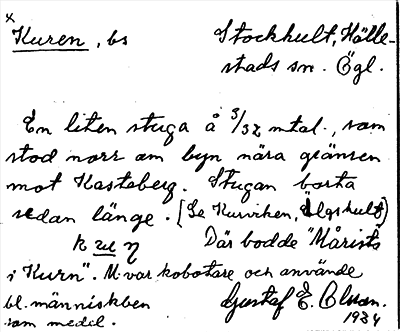 x
Kuren, bs Stockhult, Hälle-
stads sn. Ögl.
En liten stuga å 3/32 mtal., som
stod norr om byn nära gränsen
mot Kasteberg. Stugan borta
sedan länge. (Se Kurviken, Älgshult)
Där bodde "Mårists
i Kurn". M. var kobotare och använde
bl. människben
som medel.
Gustaf E. Olsson.
1934